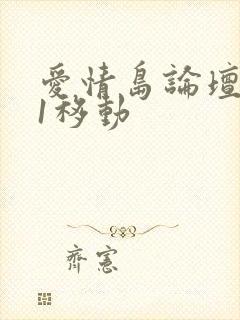 愛情島論壇
1移動
齊憲